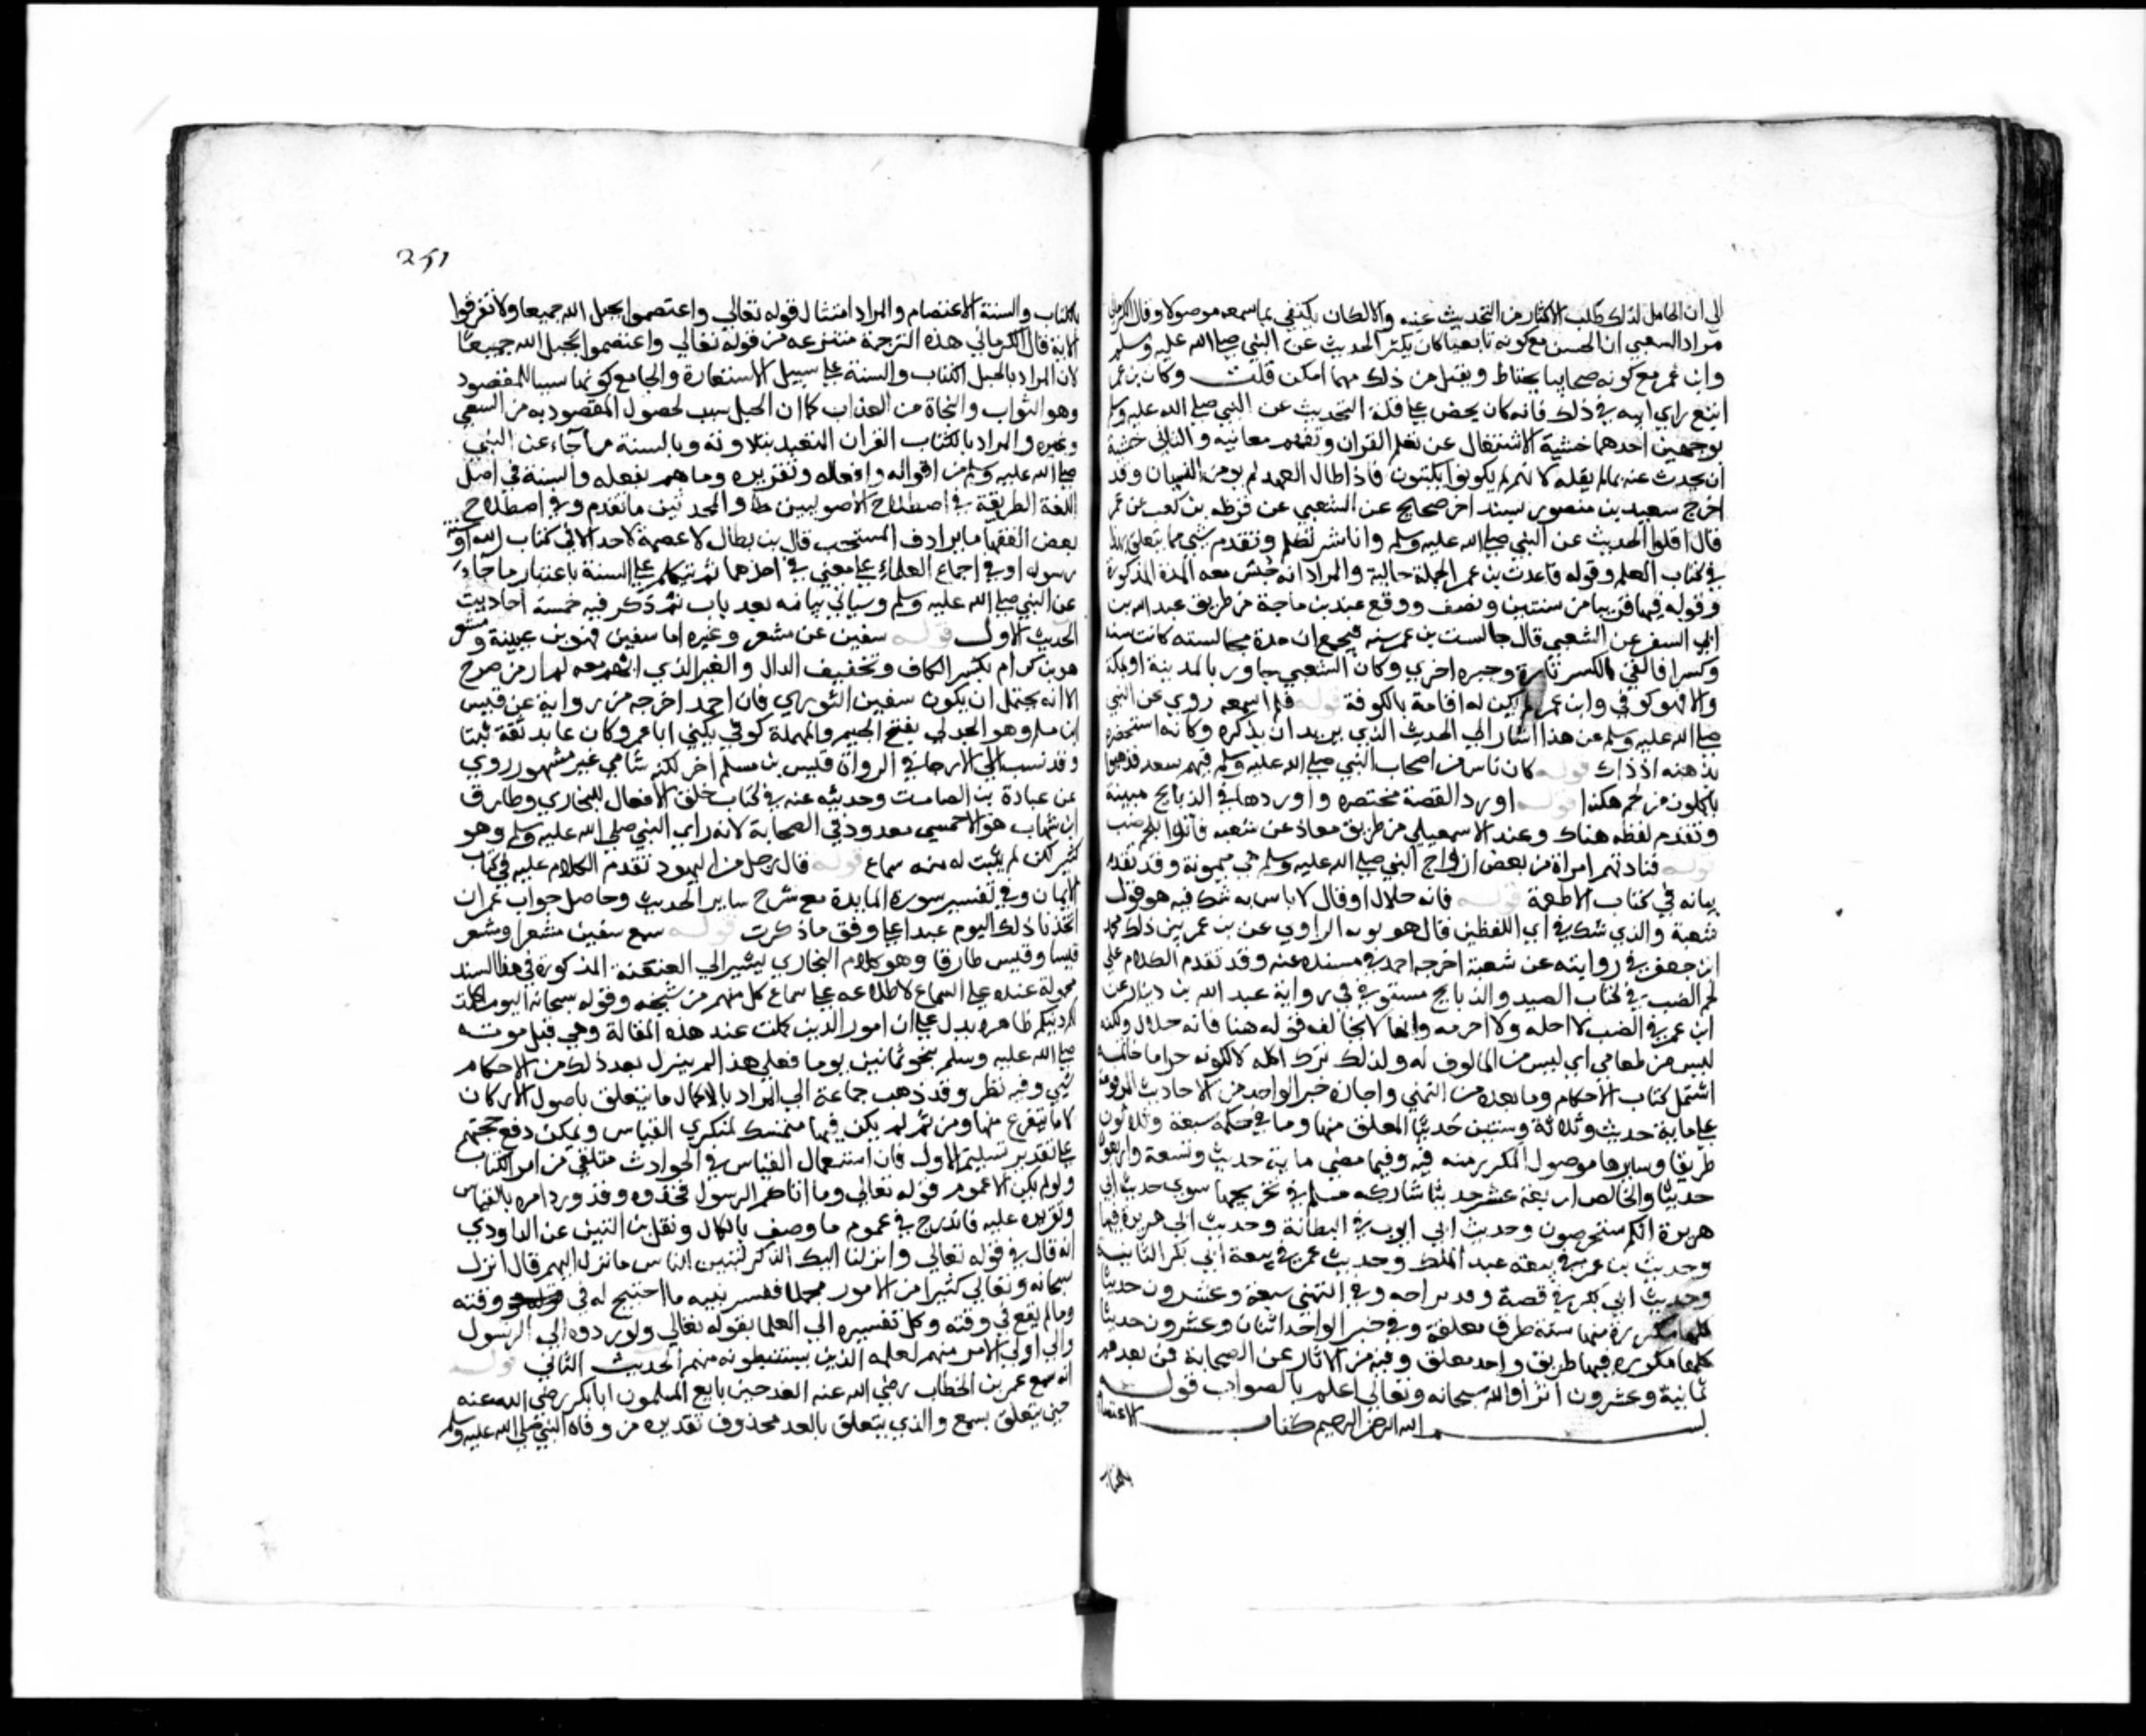 الى ان الحامل لذلك طلب الاكثار من التحديث عنه والا لكان يكتفي بما سمعه موصولا وقال الكرماني
مراد الشعبي ان الحسن مع كونه تابعيا كان يكثر الحديث عن النبي صلى الله عليه وسلم
وابن عمر مع كونه صحابيا يحتاط ويقل من ذلك مهما امكن قلت وكان بن عمر
اتبع راي ابيه في ذلك فانه كان يحض على قلة التحديث عن النبي صلى الله عليه وسلم
لوجهين احدهما خشية الاشتغال عن تعلم القران وتفهم معانيه والثاني خشية
ان يحدث عنه بما لم يقله لانهم لم يكونوا يكتبون فاذا طال العهد لم يومن النسيان وقد
اخرج سعيد بن منصور بسند اخر صحيح عن الشعبي عن قرظة بن كعب عن عمر
قال اقلوا الحديث عن النبي صلى الله عليه وسلم وانا شريككم وتقدم شي مما يتعلق بهذا
في كتاب العلم وقوله قاعدت بن عمر الجملة حالية والمراد انه جلس معه المدة المذكورة
وقوله قريبا من سنتين ونصف ووقع عند بن ماجة من طريق عبد الله بن
ابي السفر عن الشعبي قال جالست بن عمر سنة فيجمع ان مدة مجالسته كانت سنة
وكسرا فالغي الكسر تارة وجبره اخري وكان الشعبي جاور بالمدينة او بمكة
والا فهو كوفي وابن عمر لم يكن له اقامة بالكوفة قوله فلم اسمعه روي عن النبي
صلى الله عليه وسلم غير هذا اشار الى الحديث الذي يريد ان يذكره وكانه استحضره
بذهنه اذ ذاك قوله كان ناس من اصحاب النبي صلى الله عليه وسلم فيهم سعد فذهبوا
ياكلون من لحم هكذا قوله اورد القصة مختصرة واوردها في الذبايح مبينة
وتقدم لفظه هناك وعند الاسمعيلي من طريق معاذ عن شعبة فاتوا بلحم ضب
قوله فنادتهم امراة من بعض ازواج النبي صلى الله عليه وسلم هي ميمونة وقد تقدم
بيانه في كتاب الاطعمة قوله فانه حلال او قال لا باس به شك فيه هو قول
شعبة والذي شك في اي اللفظين قال هو توبة الراوي عن بن عمر بين ذلك محمد
ابن جعفر في روايته عن شعبة اخرجه احمد في مسنده عنه وقد تقدم الكلام على
لحم الضب في كتاب الصيد والذبايح مستوفي في رواية عبد الله بن دينار عن
ابن عمر في الضب لا احله ولا احرمه وانها لا تخالف قوله هنا فانه حلال ولكنه
ليس من طعامي اي ليس من المالوف له ولذلك ترك اكله لا لكونه حراما خاتمة
اشتمل كتاب الاحكام وما بعده من التمني واجازة خبر الواحد من الاحاديث المرفوعة
على ماية حديث وثلاثة وستين حديثا المعلق منها وما في حكمه سبعة وثلاثون
طريقا وسايرها موصول المكرر منه فيه وفيما مضى ماية حديث وتسعة واربعون
حديثا والخالص اربعة عشر حديثا شاركه مسلم في تخريجها سوى حديث ابي
هريرة انكم ستحرصون وحديث ابي ايوب في البطانة وحديث ابي هريرة فيها
وحديث بن عمر في بيعة عبد الملك وحديث عمر في بيعة ابي بكر الثانية
وحديث ابي بكر في قصة وفد بزاخة وفي التمني سبعة وعشرون حديثا
كلها مكررة منها ستة طرق معلقة وفي خبر الواحد اثنان وعشرون حديثا
كلها مكررة فيها طريق واحد معلق وفيه من الاثار عن الصحابة فمن بعدهم
ثمانية وعشرون اثرا والله سبحانه وتعالى اعلم بالصواب قوله
بسم الله الرحمن الرحيم كتاب الاعتصام
بالكتاب
251
بالكتاب والسنة الاعتصام والمراد امتثال قوله تعالى واعتصموا بحبل الله جميعا ولا تفرقوا
الاية قال الكرماني هذه الترجمة منتزعة من قوله تعالى واعتصموا بحبل الله جميعا
لان المراد بالحبل الكتاب والسنة على سبيل الاستعارة والجامع كونهما سببا للمقصود
وهو الثواب والنجاة من العذاب كما ان الحبل سبب لحصول المقصود به من السقي
وغيره والمراد بالكتاب القران المتعبد بتلاوته وبالسنة ما جاء عن النبي
صلى الله عليه وسلم من اقواله وافعاله وتقريره وما هم بفعله والسنة في اصل
اللغة الطريقة وفي اصطلاح الاصوليين والمحدثين ما تقدم وفي اصطلاح
بعض الفقها ما يرادف المستحب قال بن بطال لا عصمة لاحد الا في كتاب الله او سنة
رسوله او في اجماع العلماء على معنى في احدهما ثم تكلم على السنة باعتبار ما جاء
عن النبي صلى الله عليه وسلم وسياتي بيانه بعد باب ثم ذكر فيه خمسة احاديث
الحديث الاول قوله سفين عن مسعر وغيره اما سفين فهو بن عيينة ومسعر
هو بن كدام بكسر الكاف وتخفيف الدال والغير الذي ابهم معه لم ار من صرح
الا انه يحتمل ان يكون سفين الثوري فان احمد اخرجه من رواية عن قيس
ابن مسلم وهو الجدلي بفتح الجيم والمهملة كوفي يكنى ابا عمرو كان عابد ثقة ثبتا
وقد نسب الى الارجا وفي الرواة قيس بن مسلم اخر لكنه شامي غير مشهور روي
عن عبادة بن الصامت وحديثه عنه في كتاب خلق الافعال للبخاري وطارق
ابن شهاب هو الاحمسي معدود في الصحابة لانه راي النبي صلى الله عليه وسلم وهو
كبير لكن لم يثبت له منه سماع قوله قال رجل من اليهود تقدم الكلام عليه في كتاب
الايمان وفي تفسير سورة المايدة مع شرح ساير الحديث وحاصل جواب عمر ان
اتخذنا ذلك اليوم عيدا على وفق ما ذكرت قوله سمع سفين مسعرا ومسعر
قيسا وقيس طارقا وهو كلام البخاري يشير الى العنعنة المذكورة في هذا السند
محمولة عنده على السماع لاطلاعه على سماع كل منهم من شيخه وقوله سبحانه اليوم اكملت
لكم دينكم ظاهره يدل على ان امور الدين كملت عند هذه المقالة وهي قبل موته
صلى الله عليه وسلم بنحو ثمانين يوما فعلى هذا لم ينزل بعد ذلك من الاحكام
شي وفيه نظر وقد ذهب جماعة الى المراد بالاكمال ما يتعلق باصول الاركان
لا ما يتفرع منها ومن ثم لم يكن فيها متمسك لمنكري القياس ويمكن دفع حجتهم
على تقدير تسليم الاول فان استعمال القياس في الحوادث متلقى من امر الكتاب
ولو لم يكن الا عموم قوله تعالى وما اتاكم الرسول فخذوه وقد ورد امره بالقياس
وتقريره عليه فاندرج في عموم ما وصف بالكمال ونقل بن التين عن الداودي
انه قال في قوله تعالى وانزلنا اليك الذكر لتبين للناس ما نزل اليهم قال انزل
سبحانه وتعالى كثيرا من الامور مجملا ففسر نبيه ما احتيج له في وقته
وما لم يقع في وقته وكل تفسيره الى العلما بقوله تعالى ولو ردوه الى الرسول
والى اولي الامر منهم لعلمه الذين يستنبطونه منهم الحديث الثاني قوله
انه سمع عمر بن الخطاب رضي الله عنه الغد حين بايع المسلمون ابا بكر رضي الله عنه
حين يتعلق بسمع والذي يتعلق بالغد محذوف تقديره من وفاة النبي صلى الله عليه وسلم